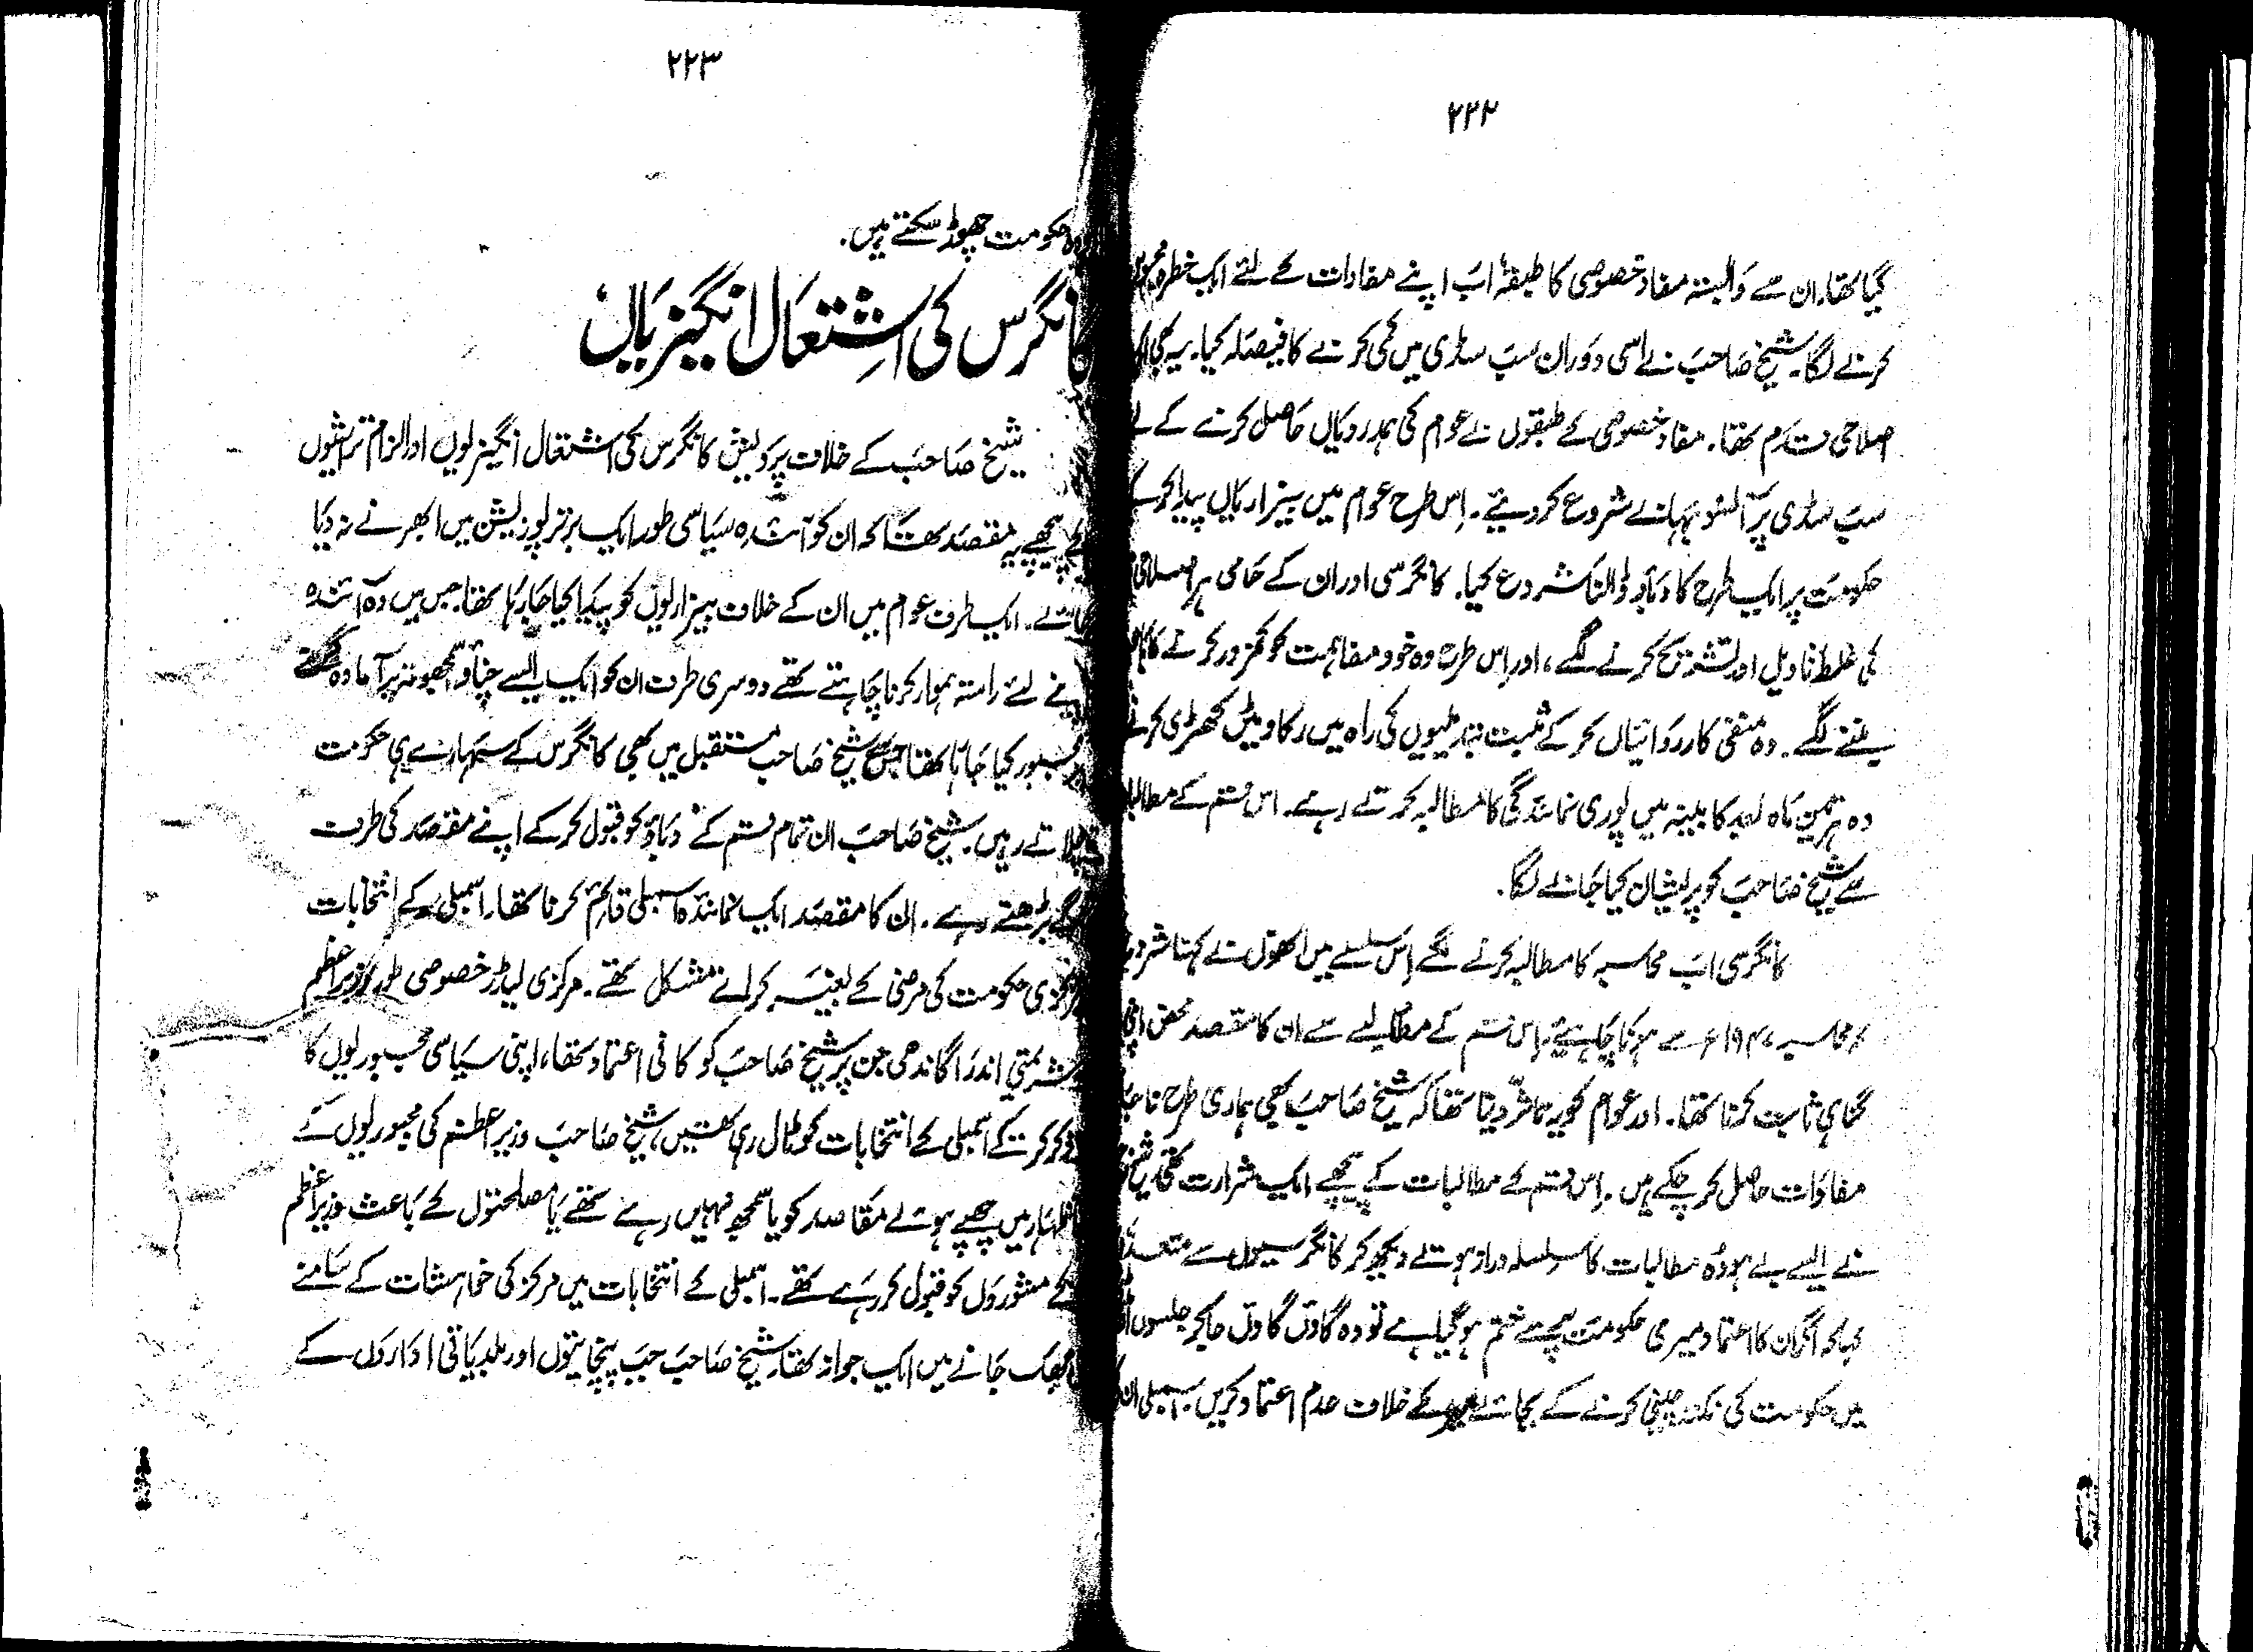 ۲۲۲
گیا تھا۔ ان سے وابستہ مفاد خصوصی کا طبقہ اب اپنے مفادات کے لئے ایک خطرہ
کرنے لگا۔ شیخ صاحب نے اسی دوران سب سڈی میں کمی کرنے کا فیصلہ کیا۔ یہ بھی
اصلاحی قدم تھا۔ مفاد خصوصی کے طبقوں نے عوام کی ہمدردیاں حاصل کرنے کے
سب سڈی پر آنسو بہانے شروع کر دیئے۔ اِس طرح عوام میں بیزاریاں پیدا کرکے
حکومت پر ایک طرح کا دباؤ ڈالنا شروع کیا۔ کانگرسی اور ان کے حامی ہر اصلاحی
کی غلط تاویل اور تشریح کرنے لگے، اور اِس طرح وہ خود مفاہمت کو کمزور کرنے کا
بننے لگے۔ وہ منفی کارروائیاں کر کے مثبت تبدیلیوں کی راہ میں رکاوٹیں کھڑی کرتے
وہ ہر تین ماہ بعد کابینہ میں پوری نمائندگی کا مطالبہ کرتے رہے۔ اس قسم کے
سے شیخ صاحب کو پریشان کیا جانے لگا۔
کانگرسی اب محاسبہ کا مطالبہ کرنے لگے اِس سلسلے میں انھوں نے کہنا
محاسبہ ۱۹۴۷ء سے ہونا چاہیئے۔ اِس قسم کے مطالبے سے ان کا مقصد محض
ثابت کرنا تھا۔ اور عوام کو یہ تاثر دینا تھا کہ شیخ صاحب بھی ہماری طرح
مفادات حاصل کر چکے ہیں۔ اِس قسم کے مطالبات کے پیچھے ایک شرارت تھی۔
نے ایسے بے ہودہ مطالبات کا سلسلہ دراز ہوتے دیکھ کر کانگرسیوں سے
کہا کہ اگر ان کا اعتماد میری حکومت سے ختم ہو گیا ہے تو وہ گاؤں گاؤں جا کر جلسوں
میں حکومت کی نکتہ چینی کرنے کے بجائے میرے خلاف عدم اعتماد کریں۔ اسمبلی
۲۲۳
وہ حکومت چھوڑ سکتے ہیں۔
کانگرس کی اشتعال انگیزیاں
شیخ صاحب کے خلاف پردیش کانگرس کی اشتعال انگیزیوں اور الزام تراشیوں
کے پیچھے یہ مقصد تھا کہ ان کو آئندہ سیاسی طور ایک برتر پوزیشن میں ابھرنے نہ دیا
جائے۔ ایک طرف عوام میں ان کے خلاف بیزاریوں کو پیدا کیا جا رہا تھا۔ جس میں وہ آئندہ
اپنے لئے راستہ ہموار کرنا چاہتے تھے دوسری طرف ان کو ایک ایسے چناؤ سمجھوتہ پر آمادہ
مجبور کیا جاتا تھا جس سے شیخ صاحب مستقبل میں بھی کانگرس کے سہارے ہی حکومت
چلاتے رہیں۔ شیخ صاحب ان تمام قسم کے دباؤ کو قبول کر کے اپنے مقصد کی طرف
آگے بڑھتے رہے۔ ان کا مقصد ایک نمائندہ اسمبلی قائم کرنا تھا۔ اسمبلی کے انتخابات
مرکزی حکومت کی مرضی کے بغیر کرانے مشکل تھے۔ مرکزی لیڈر خصوصی طور وزیر اعظم
شریمتی اندرا گاندھی جن پر شیخ صاحب کو کافی اعتماد تھا، اپنی سیاسی مجبوریوں کا
ذکر کر کے اسمبلی کے انتخابات کو ٹال رہی تھیں، شیخ صاحب وزیر اعظم کی مجبوریوں کے
اظہار میں چھپے ہوئے مقاصد کو یا سمجھ نہیں رہے تھے یا مصلحتوں کے باعث وزیر اعظم
کے مشوروں کو قبول کر رہے تھے۔ اسمبلی کے انتخابات میں مرکز کی خواہشات کے سامنے
جھک جانے میں ایک جواز تھا۔ شیخ صاحب جب پنچایتوں اور بلدیاتی اداروں کے